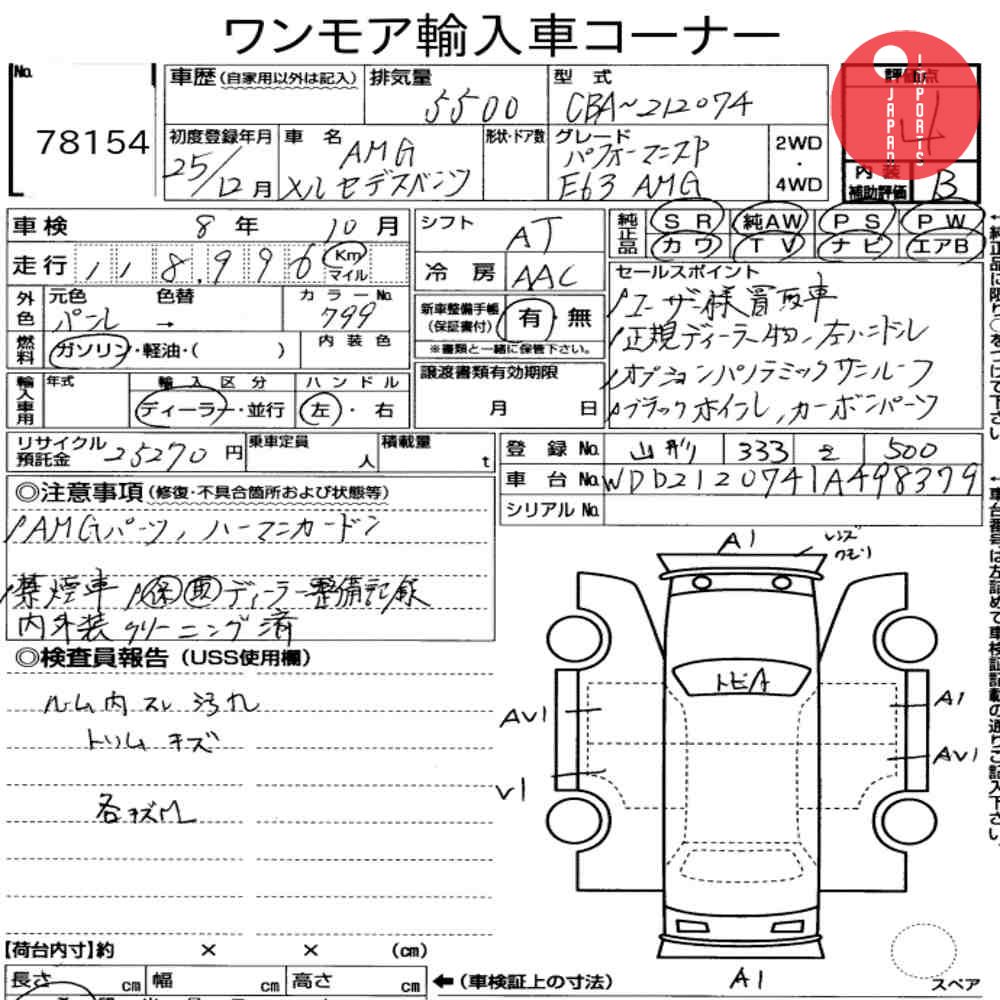 ワンモア輸入車コーナー
No. 78154
車歴 (自家用以外は記入)
排気量 5500
型式 CBA-212074
評価点 4
JAPAN IMPORTS
初度登録年月 25/12月
車名 AMG
メルセデスベンツ
形状・ドア数
グレード パフォーマンスP
E63 AMG
2WD・4WD
内装補助評価 B
車検 8年 10月
走行 118,996 Km マイル
シフト AT
冷房 AAC
純正品 SR 純AW PS PW
カワ TV ナビ エアB
外色 元色 パール 色替 → カラーNo. 799
燃料 ガソリン・軽油・( ) 内装色
新車整備手帳 (保証書付) 有・無
※書類と一緒に保管下さい。
セールスポイント
ユーザー様買取車
正規ディーラー物、左ハンドル
オプションパノラミックサンルーフ
ブラックホイール、カーボンパーツ
輸入車用 年式 輸入区分 ディーラー・並行 ハンドル 左・右
譲渡書類有効期限 月 日
リサイクル預託金 25270円 乗車定員 人 積載量 t
登録No. 山形 333 500
車台No. WDD2120741A498379
シリアルNo.
◎注意事項 (修復・不具合箇所および状態等)
AMGパーツ、ハーマンカードン
禁煙車 保取ディーラー整備記録
内外装クリーニング済
◎検査員報告 (USS使用欄)
ルーム内スレ汚れ
トリムキズ
各キズM
A1
レンズ
クモリ
トビA
AV1
A1
AV1
V1
A1
スペア
【荷台内寸】約 × × (cm)
長さ cm 幅 cm 高さ cm
←(車検証上の寸法)
←純正品に限り○をつけて下さい。
←車台番号は左詰めで車検証記載の通りご記入下さい。